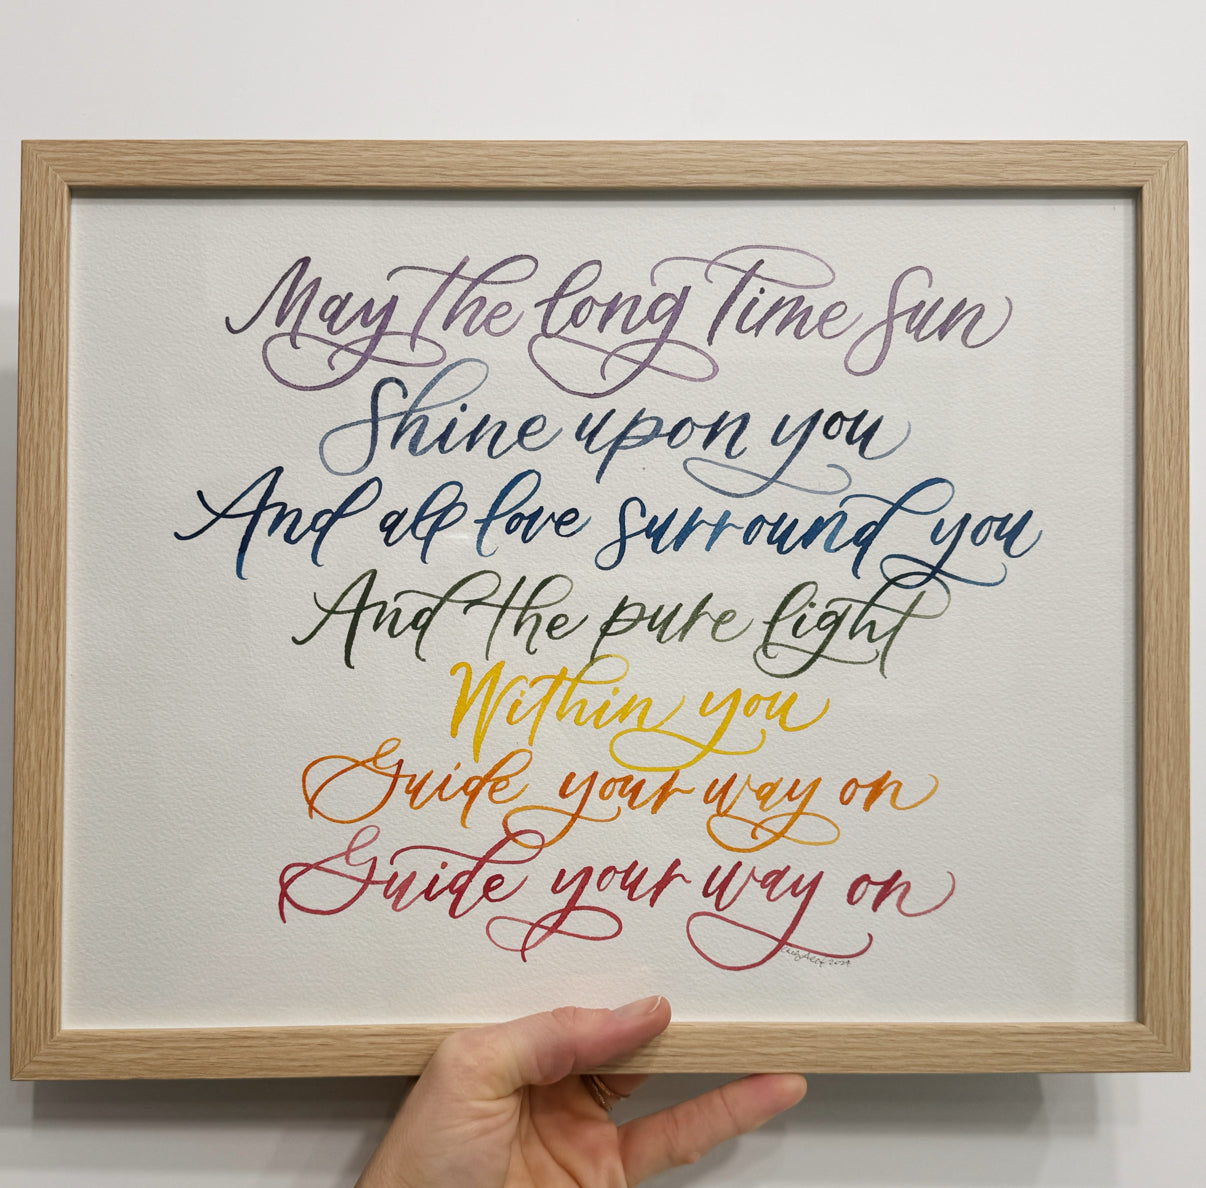 May the long Time Sun
Shine upon you
And all love surround you
And the pure light
Within you
Guide your way on
Guide your way on
2024